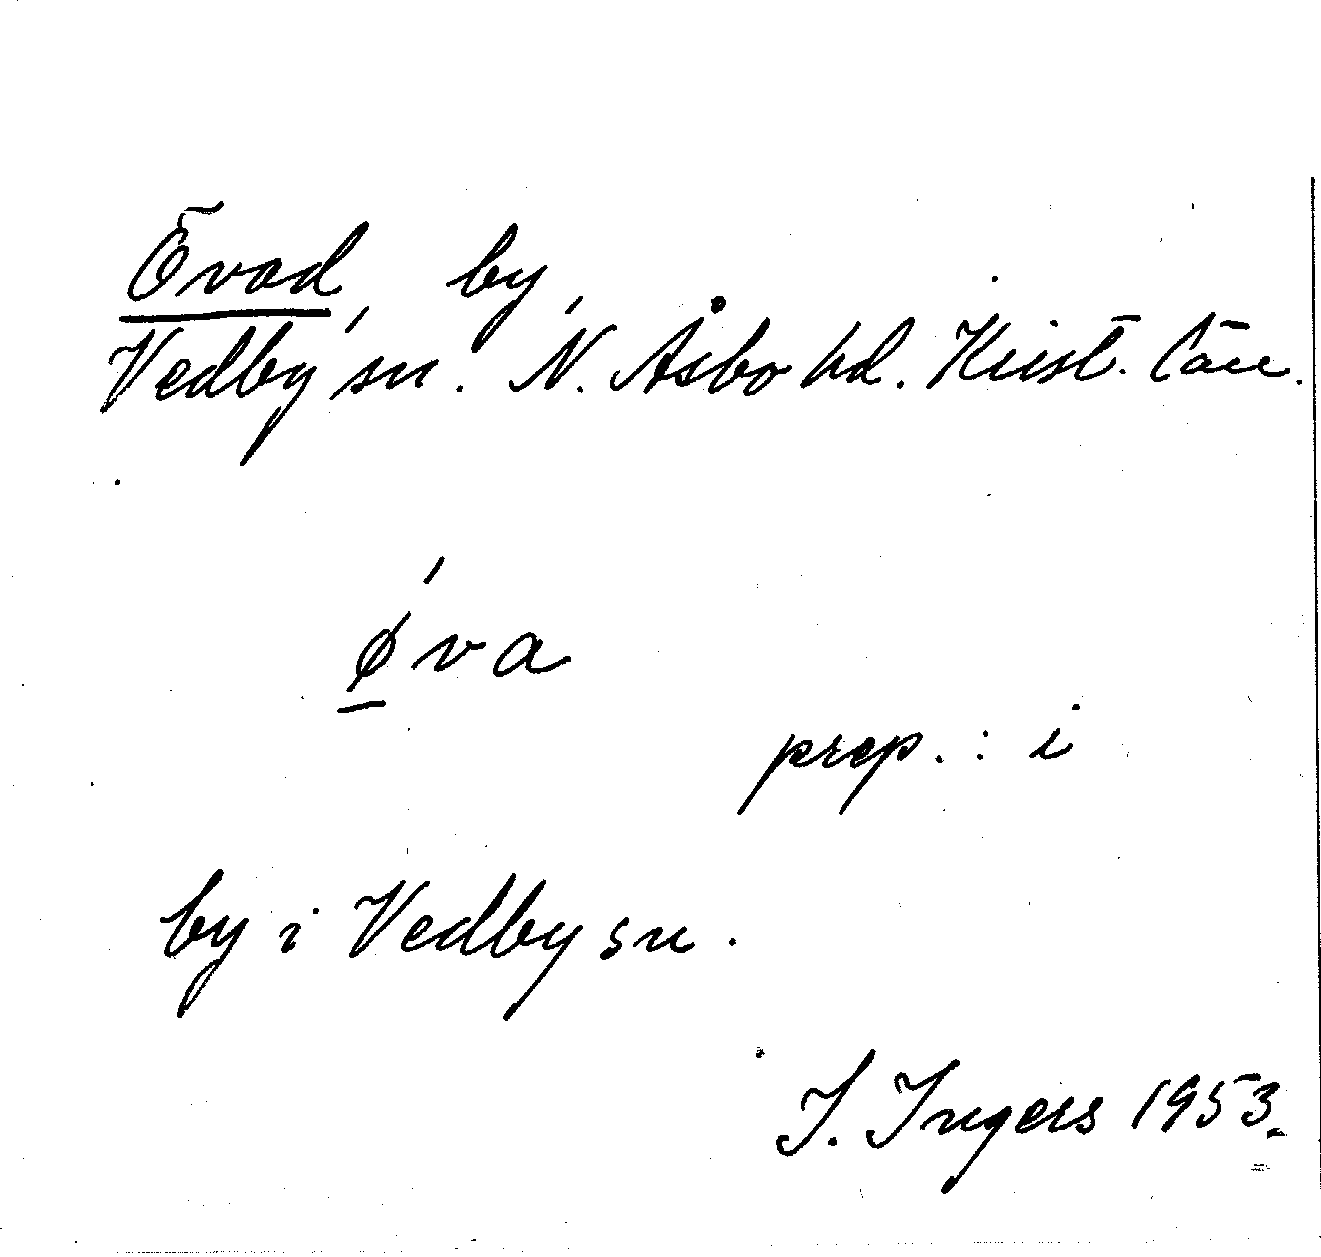 Övad, by,
Vedby sn. N. Åsbo hd. Krist. län.
ǿva
prep. : i
by i Vedby sn.
I. Ingers 1953.